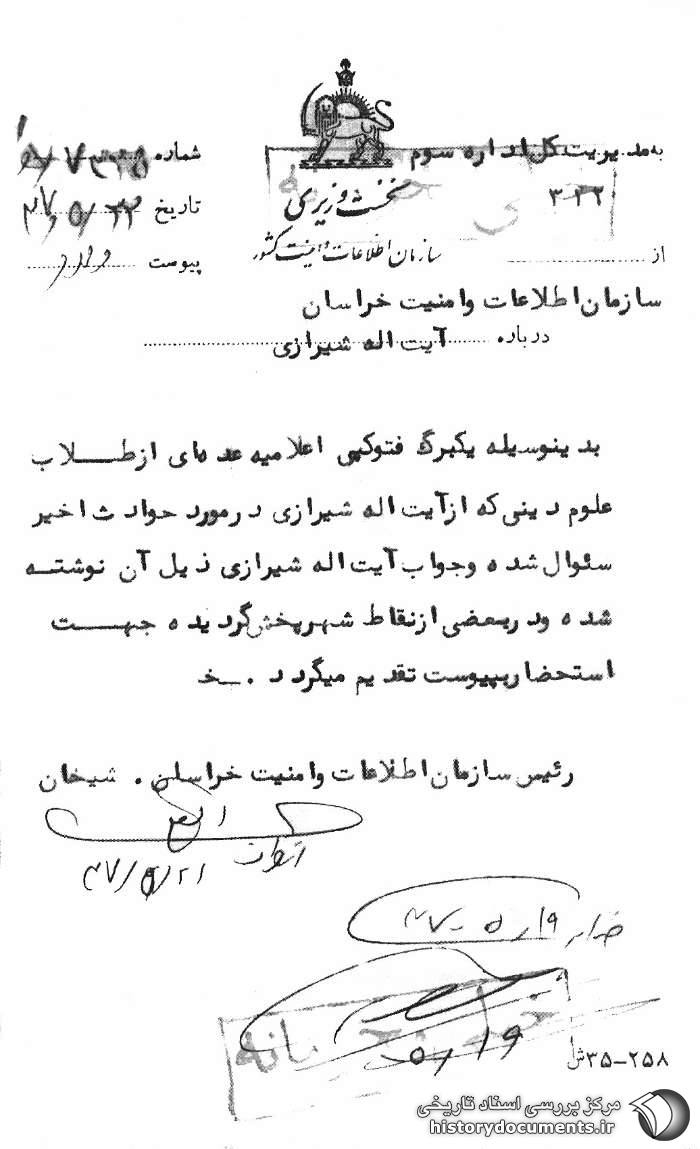 به مدیریت کل اداره سوم
۳۳۲
شماره
نخست وزیری
تاریخ ۴۷/۵/۲۲
سازمان اطلاعات و امنیت کشور
از
پیوست دارد
سازمان اطلاعات و امنیت خراسان
درباره آیت اله شیرازی
بدینوسیله یکبرگ فتوکپی اعلامیه عده ای از طلاب
علوم دینی که از آیت اله شیرازی در مورد حوادث اخیر
سئوال شده و جواب آیت اله شیرازی ذیل آن نوشته
شده و در بعضی از نقاط شهر پخش گردیده جهت
استحضار بپیوست تقدیم میگردد . خ
رئیس سازمان اطلاعات و امنیت خراسان . شیخان
۴۷/۵/۲۱
۴۷-۵-۱۹
خیلی محرمانه
۵/۱۹
۳۵-۲۵۸ش
مرکز بررسی اسناد تاریخی
historydocuments.ir